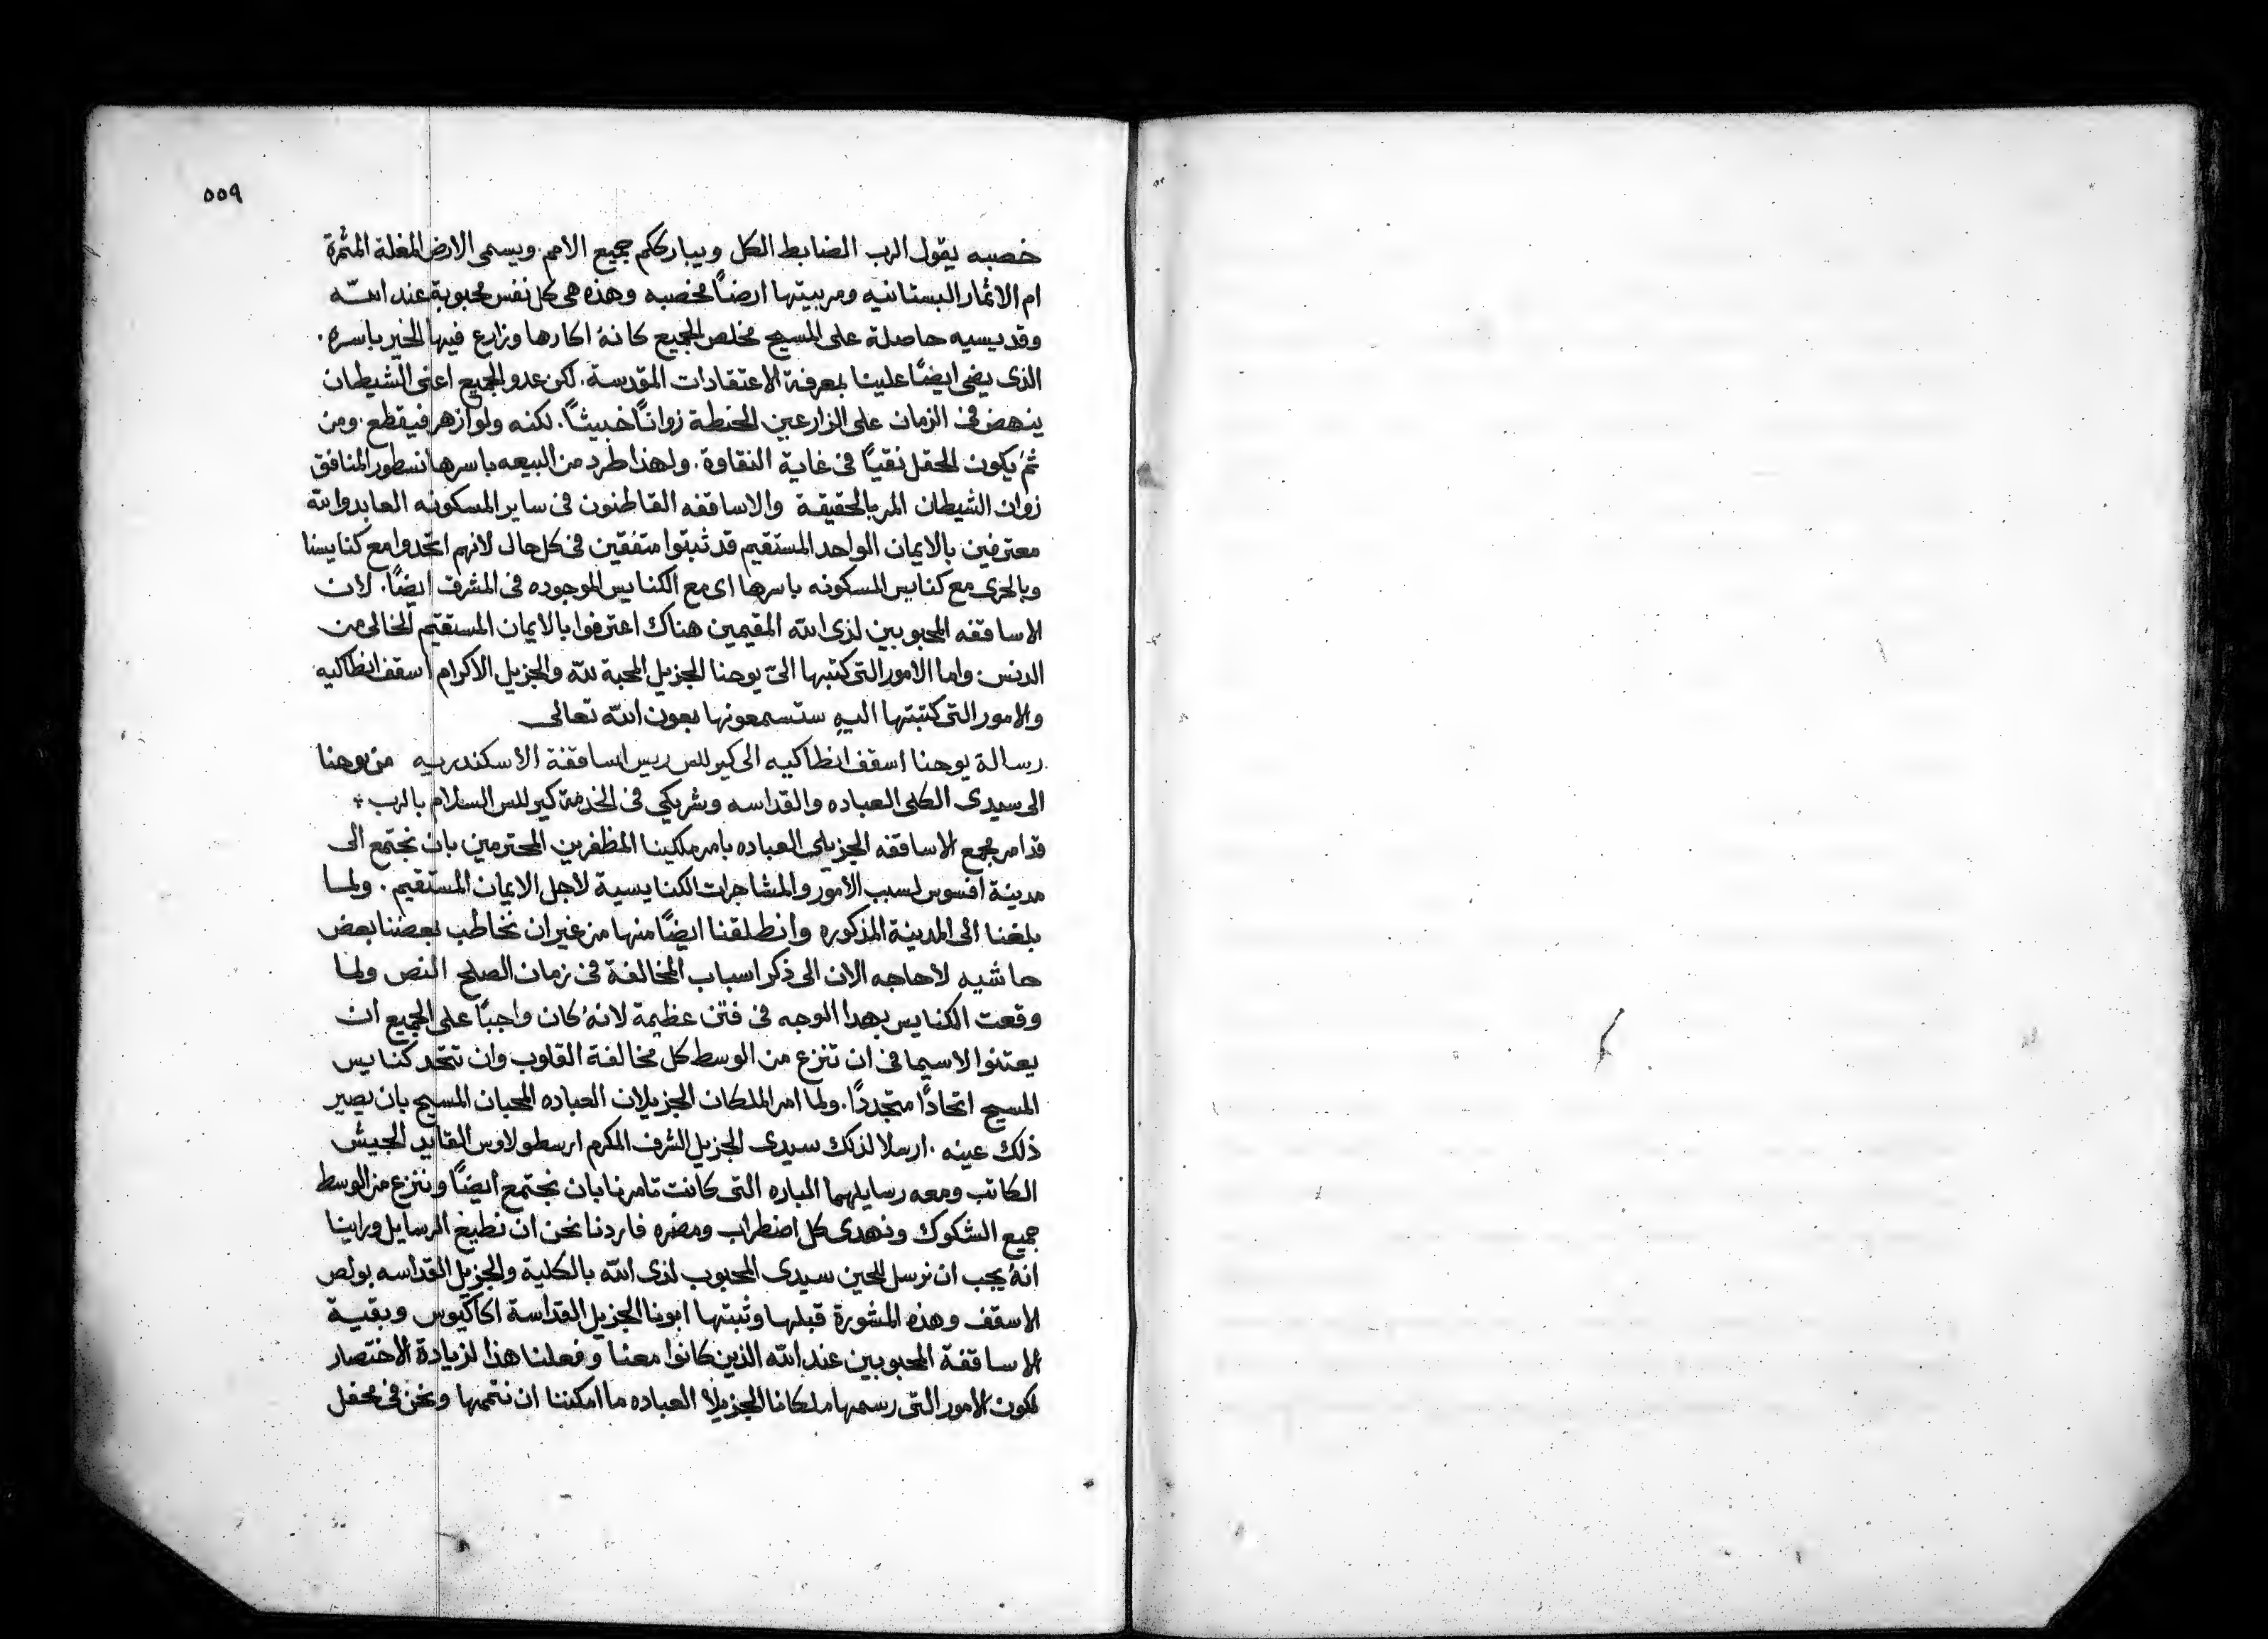 ٥٥٩
خصبه يقول الرب الضابط الكل ويبارككم جميع الامم. ويسمى الارض المغلة المثمرة
ام الاثمار البستانيه ومربيتها ارضاً مخصبه وهذه هى كل نفس محبوبة عند الله
وقديسيه حاصلة على المسيح مخلص الجميع كانهُ اكارها وزارع فيها الخير باسره.
الذى يضى ايضاً علينا بمعرفة الاعتقادات المقدسة. لكن عدو الجميع اعنى الشيطان
ينهض فى الزمان على الزارعين الحنطة زواناً خبيثاً. لكنه ولو ازهر فيقطع. ومن
ثمَ يكون الحقل نقياً فى غاية النقاوة. ولهذا طرد من البيعه باسرها نسطور المنافق
زوان الشيطان المر بالحقيقة والاساقفه القاطنون فى ساير المسكونه العابدوا الله
معترفين بالايمان الواحد المستقيم قد ثبتوا متفقين فى كل حال لانهم اتحدوا مع كنايسنا
وبالحرى مع كنايس المسكونه باسرها اى مع الكنايس الموجوده فى المشرق ايضاً. لان
الاساقفه المحبوبين لذى الله المقيمين هناك اعترفوا بالايمان المستقيم الخالى من
الدنس. واما الامور التى كتبها الىّ يوحنا الجزيل المحبة لله والجزيل الاكرام اسقف انطاكيه
والامور التى كتبتها اليهِ ستسمعونها بعون الله تعالى
رسالة يوحنا اسقف انطاكيه الى كيرللس ريس اساقفة الاسكندريه من يوحنا
الى سيدى الكلى العباده والقداسه وشريكي فى الخدمة كيرللس السلام بالرب
قد امر مجمع الاساقفه الجزيلى العباده بامر ملكينا المظفرين المحترمين بان نجتمع الى
مدينة افسوس لسبب الامور والمشاجرات الكنايسية لاجل الايمان المستقيم. ولما
بلغنا الى المدينة المذكوره وانطلقنا ايضاً منها من غير ان نخاطب بعضنا بعض
حاشيه لاحاجه الان الى ذكر اسباب المخالفة فى زمان الصلح النص ولما
وقعت الكنايس بهدا الوجه فى فتن عظيمة لانهُ كان واجباً على الجميع ان
يعتنوا لاسيما فى ان تنزع من الوسط كل مخالفة القلوب وان تتحد كنايس
المسيح اتحاداً متجدداً. ولما امر الملكان الجزيلان العباده المحبان المسيح بان يصير
ذلك عينه. ارسلا لذلك سيدى الجزيل الشرف المكرم ارسطولاوس القايد الجيش
الكاتب ومعه رسايلهما الباره التى كانت تامرنا بان نجتمع ايضاً وننزع من الوسط
جميع الشكوك ونهدى كل اضطراب ومضره فاردنا نحن ان نطيع الرسايل وراينا
انهُ يجب ان نرسل للحين سيدى المحبوب لذى الله بالكلية والجزيل القداسه بولص
الاسقف وهذه المشورة قبلها وثبتها ابونا الجزيل القداسة اكاكيوس وبقية
الاساقفة المحبوبين عند الله الذين كانوا معنا وفعلنا هذا لزيادة الاختصار
لكون الامور التى رسمها ملكانا الجزيلا العباده ما امكننا ان نتممها ونحن فى محفل